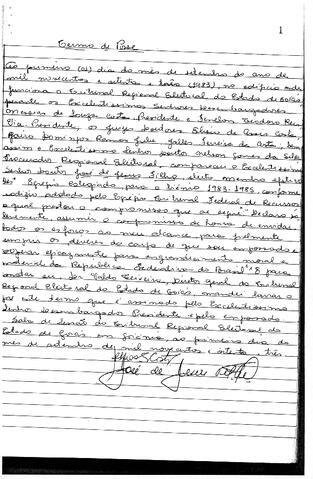 1
Termo de Posse
Ao primeiro (01) dia do mês de setembro do ano de
mil novecentos e oitenta e três (1983), no edifício onde
funciona o Tribunal Regional Eleitoral do Estado de Goiás,
perante os Excelentíssimos Senhores Desembargadores
de Souza Costa, Presidente e Fenelon Teodoro Reis,
Vice-Presidente, os juízes Doutores
Jairo Domingos Ramos Jubé, Jalles Ferreira da Costa, bem
assim o Excelentíssimo Senhor Doutor Nelson Gomes da Silva,
Procurador Regional Eleitoral, compareceu o Excelentíssimo
Senhor Doutor José de Jesus Filho, eleito membro efetivo
Egrégio colegiado, para o biênio 1983-1985, conforme
pelo Egrégio Tribunal Federal de Recursos,
o qual prestou o compromisso que se segue: "Declaro so-
lenemente, assumir o compromisso de honra de envidar
todos os esforços ao meu alcance para fielmente
cumprir os deveres do cargo de que sou empossado e
eficazmente para engrandecimento moral e
material da República Federativa do Brasil". E para
constar eu, Teixeira, Diretor Geral do Tribunal
Regional Eleitoral do Estado de Goiás, mandei lavrar o
este termo que é assinado pelo Excelentíssimo
Senhor Desembargador Presidente e pelo empossado.
Sala de Sessões do Tribunal Regional Eleitoral do
Estado de Goiás, em Goiânia, ao primeiro dia do
mês de setembro de mil novecentos e oitenta e três.
José de Jesus Filho